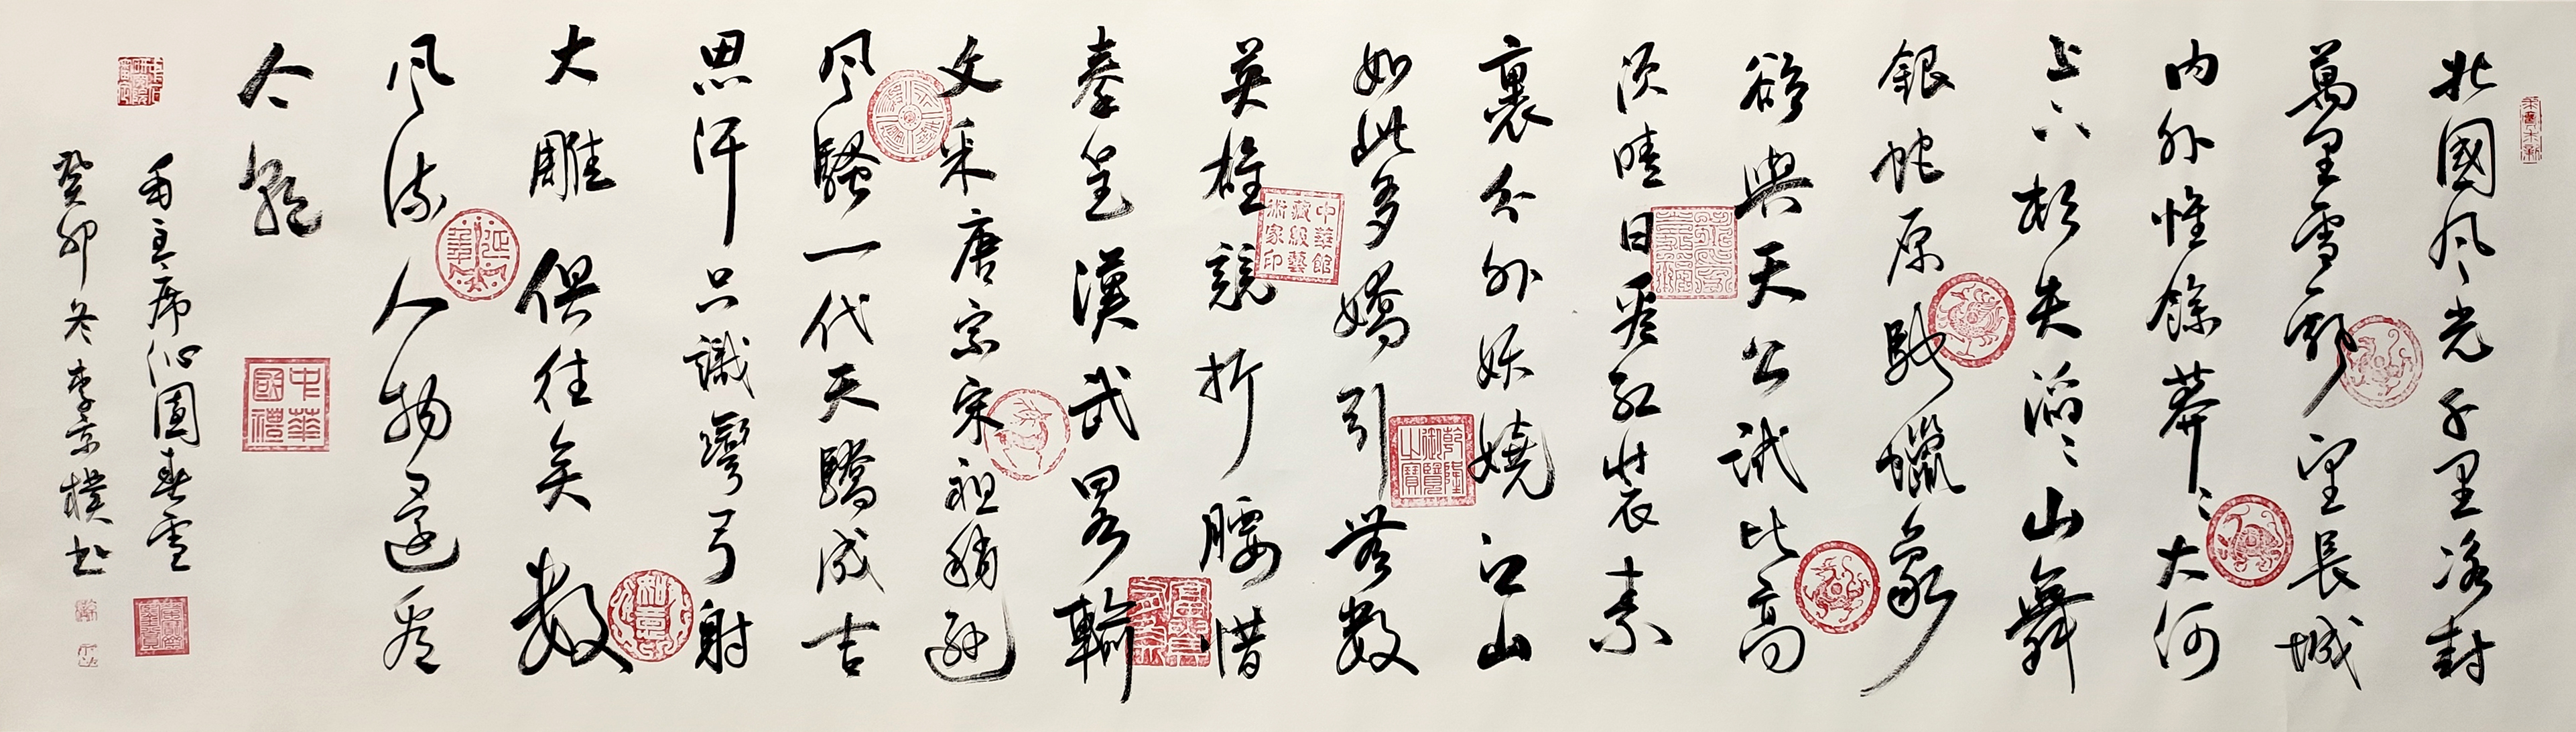 北國风光千里冰封
萬里雪飘望長城
内外惟餘莽〻大河
上下顿失滔〻山舞
銀蛇原馳蠟象
欲與天公試比高
须晴日看红装素
裹分外妖嬈江山
如此多嬌引无数
英雄競折腰惜
秦皇漢武畧輸
文采唐宗宋祖稍遜
风騷一代天驕成吉
思汗只識彎弓射
大雕俱往矣数
风流人物还看
今朝
毛主席沁園春雪
癸卯冬李京樸书
中華館藏級藝術家印
中華國禮